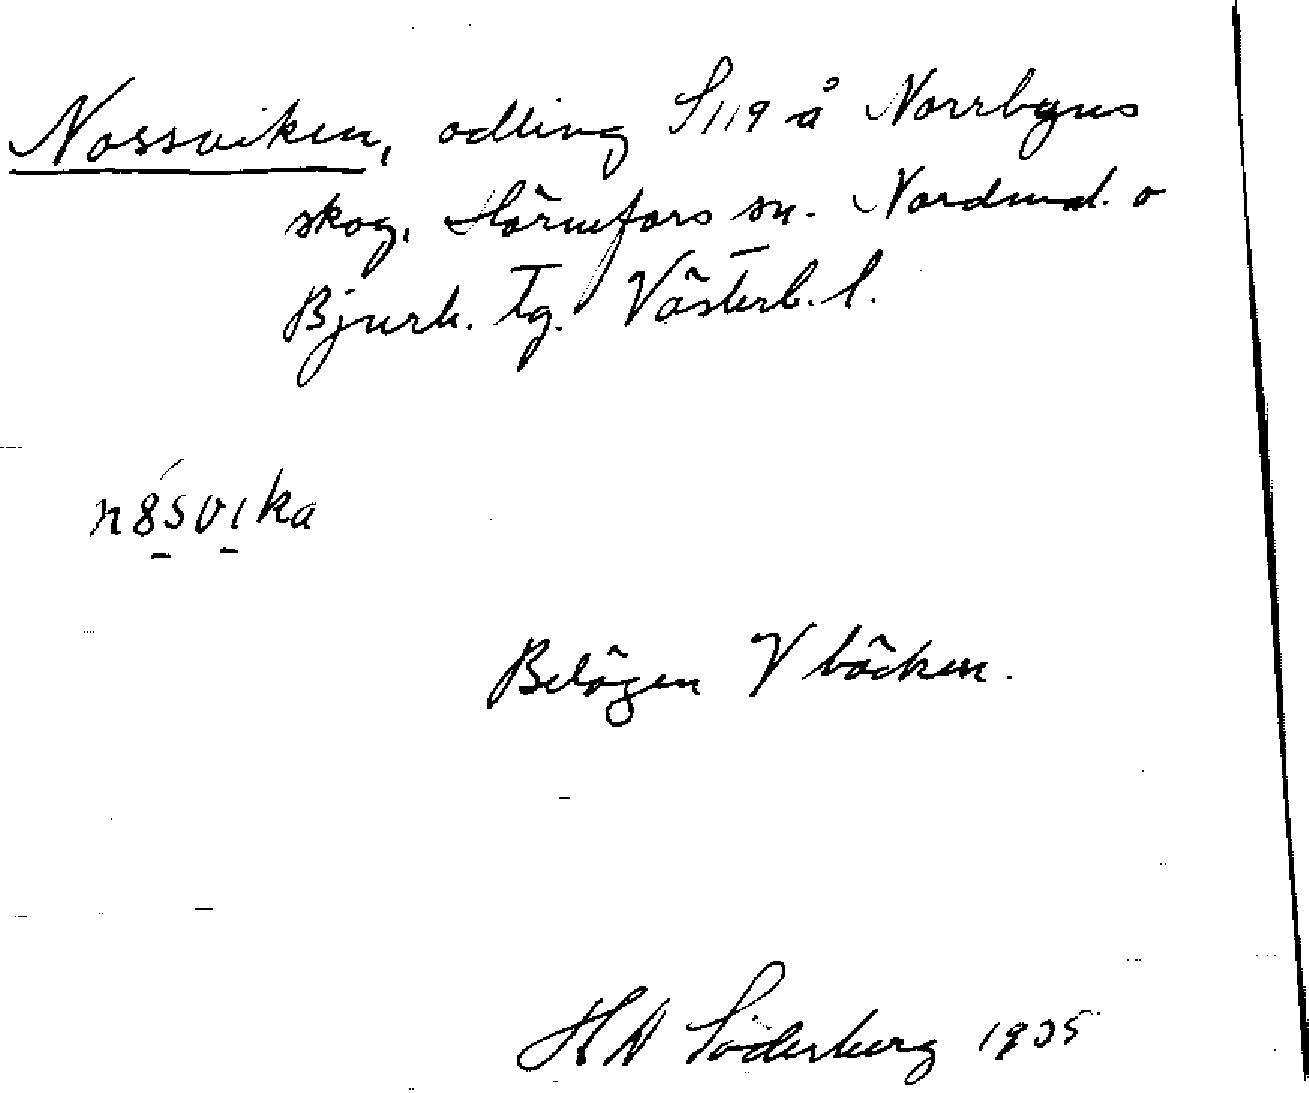 Nossviken, odling S119 å Norrbyns
skog, Hörnefors sn. Nordmal. o
Bjurh. tg. Västerb. l.
n8́svika
Belägen V bäcken.
H N Söderberg 1935